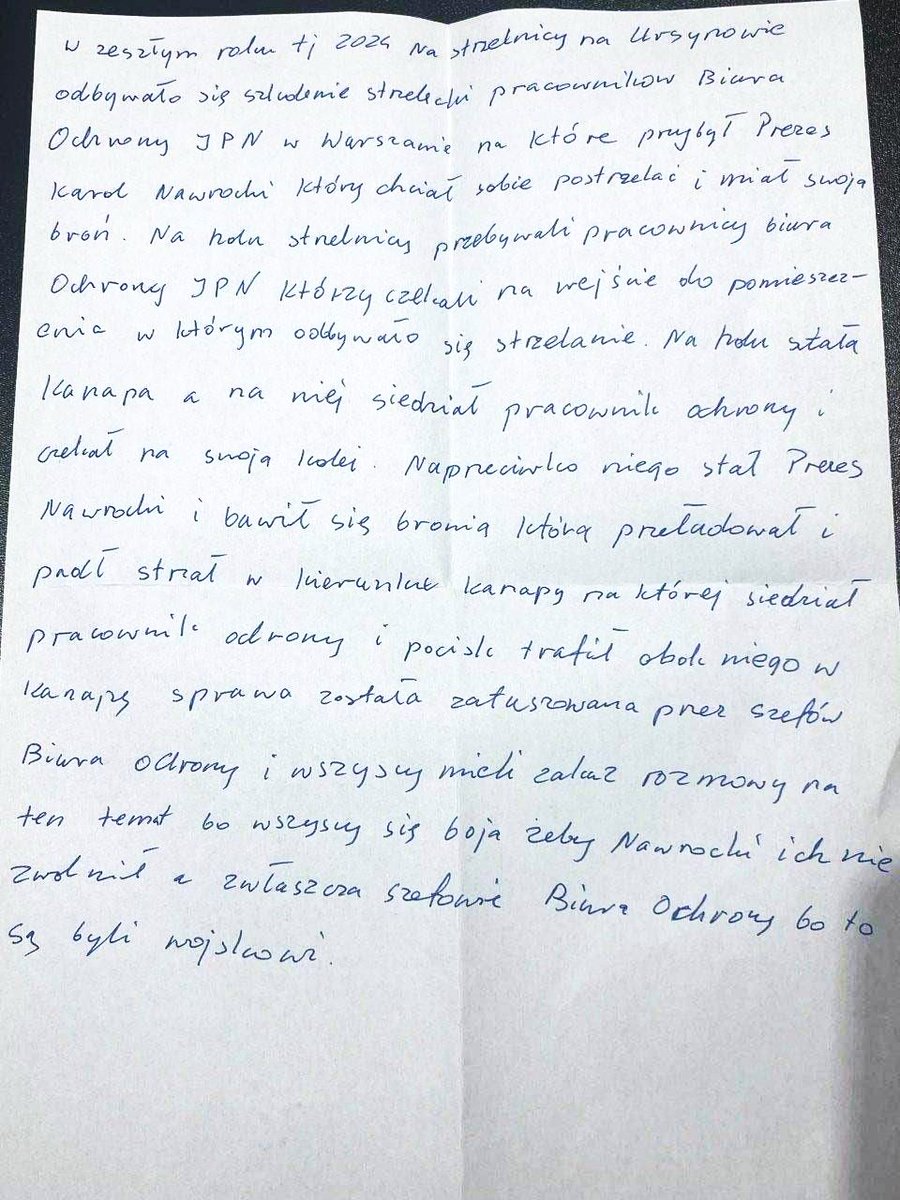 W zeszłym roku tj 2024 Na strzelnicy na Ursynowie
odbywało się szkolenie strzelecki pracowników Biura
Ochrony IPN w Warszawie na które przybył Prezes
Karol Nawrocki który chciał sobie postrzelać i miał swoja
broń. Na holu strzelnicy przebywali pracownicy biura
Ochrony IPN którzy czekali na wejście do pomieszcz-
enia w którym odbywało się strzelanie. Na holu stała
Kanapa a na niej siedział pracownik ochrony i
czekał na swoja kolei. Naprzeciwko niego stał Prezes
Nawrocki i bawił się bronia którą przeładował i
padł strzał w kierunku kanapy na której siedział
pracownik ochrony i pocisk trafił obok niego w
Kanapę sprawa została zatuszowana przez szefów
Biura Ochrony i wszyscy mieli zakaz rozmowy na
ten temat bo wszyscy się boja żeby Nawrocki ich nie
zwolnił a zwłaszcza szefowie Biura Ochrony bo to
są byli wojskowi.